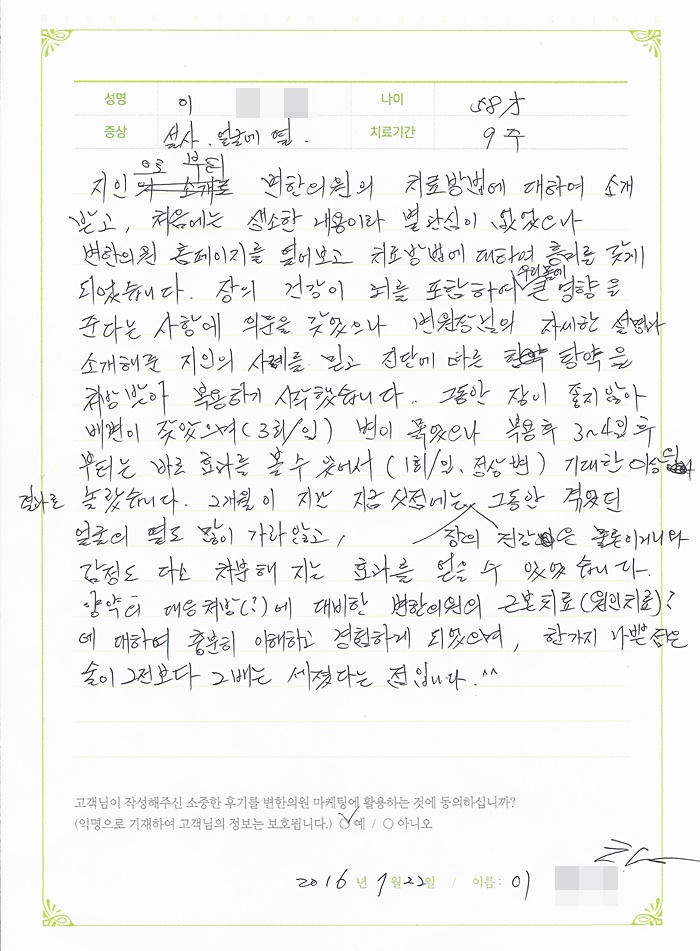 성명 이 나이 58才
증상 설사. 얼굴에 열. 치료기간 9주
지인으로 부터 변한의원의 치료방법에 대하여 소개
받고, 처음에는 생소한 내용이라 별관심이 없었으나
변한의원 홈페이지를 열어보고 치료방법에 대하여 흥미를 갖게
되었습니다. 장의 건강이 뇌를 포함하여 우리몸에 큰 영향을
준다는 사항에 의문을 갖었으나 변원장님의 자세한 설명과
소개해준 지인의 사례를 믿고 진단에 따른 탕약을
처방 받아 복용하기 시작했습니다.. 그동안 장이 좋지않아
배변이 잦았으며(3회/일) 변이 묽었으나 복용후 3~4일 후
부터는 바로 효과를 볼 수 있어서 (1회/일, 정상변) 기대한 이상의
결과로 놀랐습니다. 2개월이 지난 지금 시점에는 그동안 겪었던
얼굴의 열도 많이 가라앉고, 장의 건강은 물론이거니와
감정도 다소 차분해 지는 효과를 얻을 수 있었습니다.
양약의 대응처방(?)에 대비한 변한의원의 근본치료(원인치료)?
에 대하여 충분히 이해하고 경험하게 되었으며, 한가지 나쁜점은
술이 그전보다 2배는 세졌다는 점입니다.^^
고객님이 작성해주신 소중한 후기를 변한의원 마케팅에 활용하는 것에 동의하십니까?
(익명으로 기재하여 고객님의 정보는 보호됩니다.) ○ 예 / ○ 아니오
2016년 7월 22일 / 이름 : 이